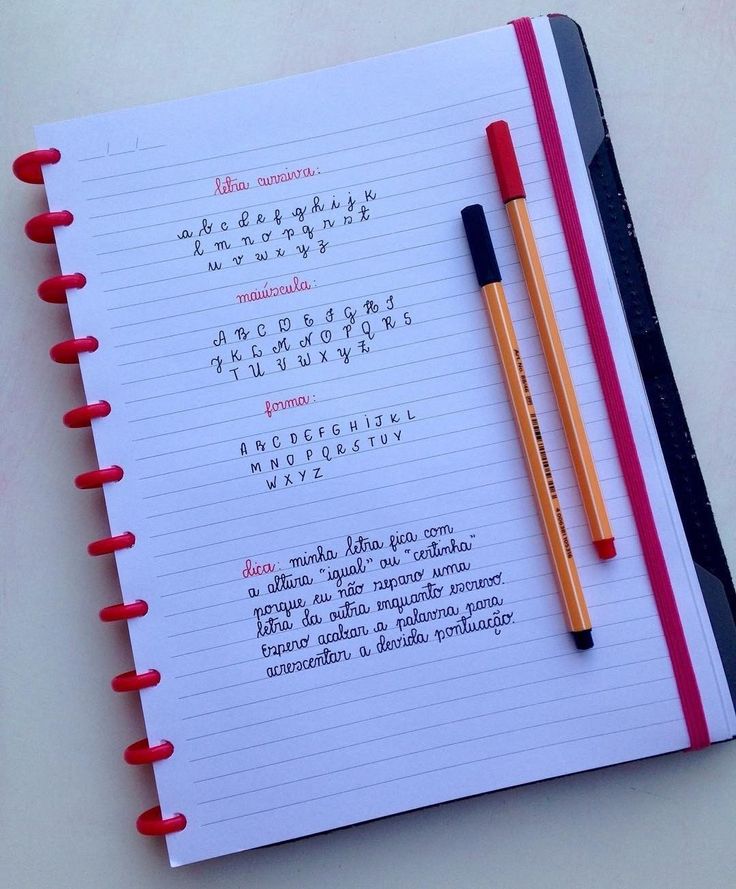 / /
letra cursiva:
a b c d e f g h i j k
l m n o p q r s t
u v w x y z
maiúscula:
A B C D E F G H I
J K L M N O P Q R S
T U V W X Y Z
forma:
A B C D E F G H I J K L
M N O P Q R S T U V
W X Y Z
dica: minha letra fica com
a altura "igual" ou "certinha"
porque eu não separo uma
letra da outra enquanto escrevo.
Espero acabar a palavra para
acrescentar a devida pontuação.